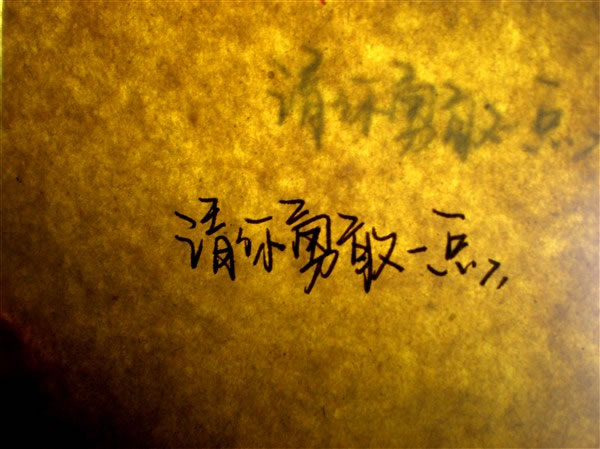 请你勇敢一点,
请你勇敢一点,,